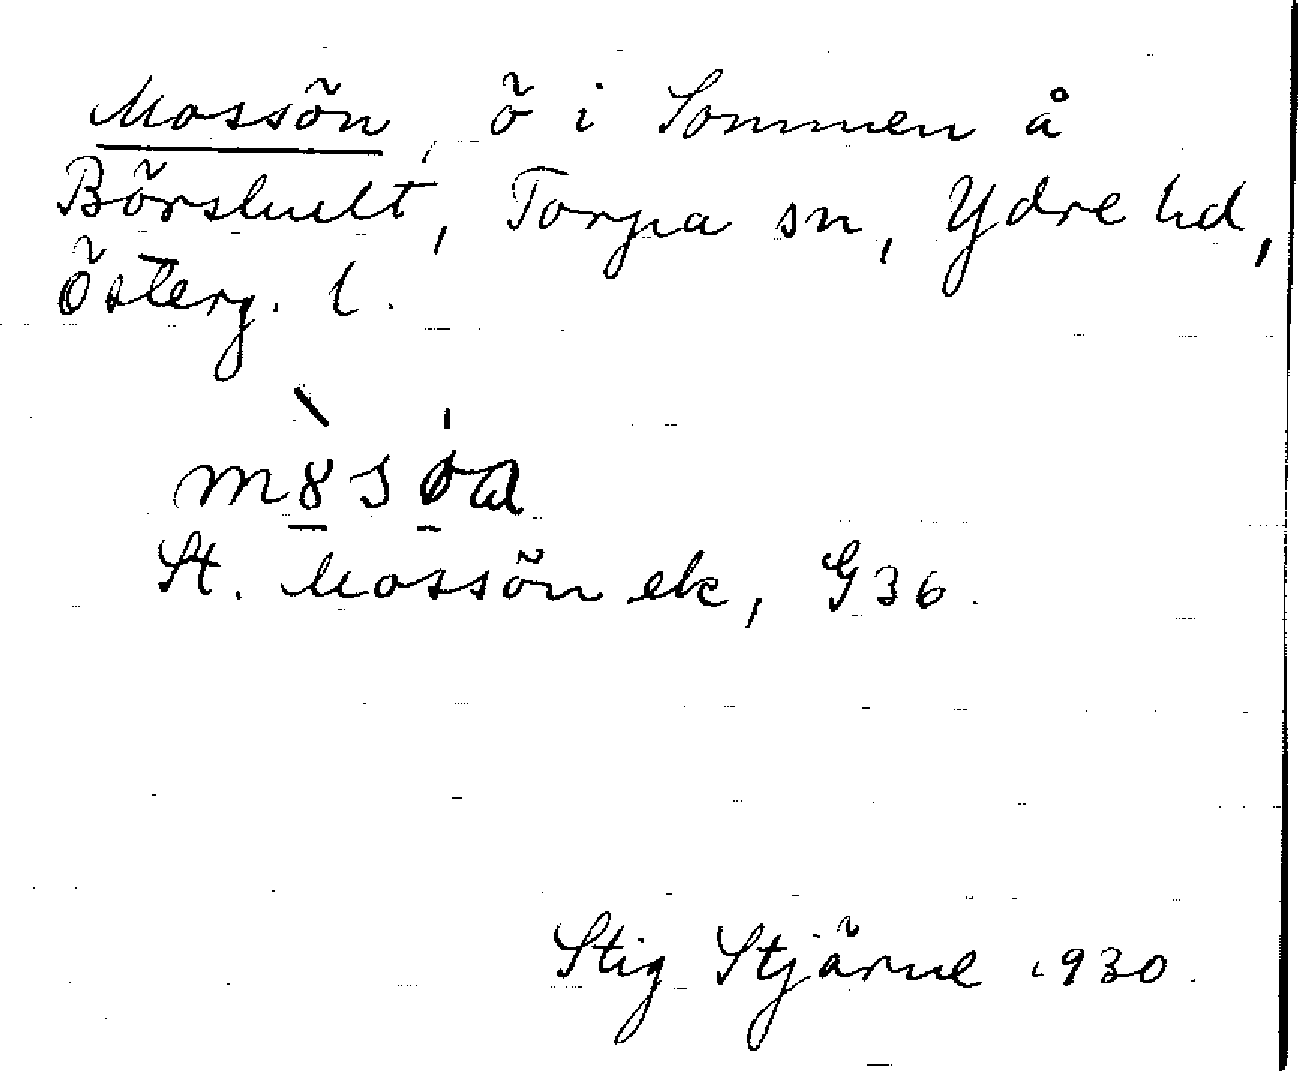 Mossön, ö i Sommen å
Börshult, Torpa sn, Ydre hd,
Österg. l.
m8söa
St. Mossön ek, G36.
Stig Stjärne 1930.